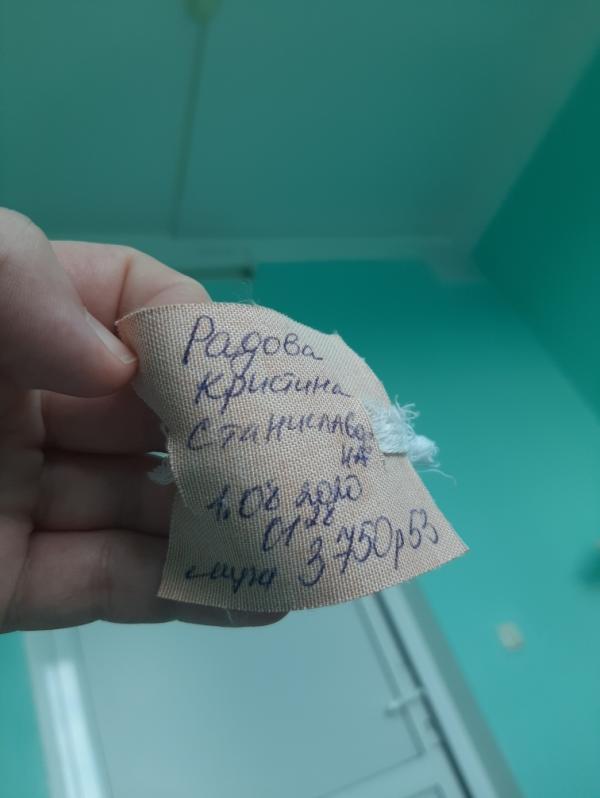 Радова
Кристина
Станиславов
на
1.08 2020
01 28
3750 р 53